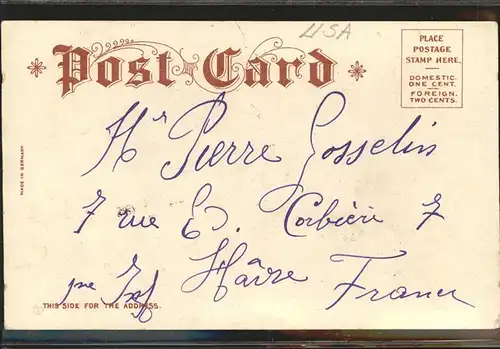 USA
Post Card
PLACE
POSTAGE
STAMP HERE.
DOMESTIC.
ONE CENT.
FOREIGN.
TWO CENTS.
MADE IN GERMANY
Mr Pierre Gosselin
7 rue Ed. Corbière 7
Hâvre
Inf France
THIS SIDE FOR THE ADDRESS.